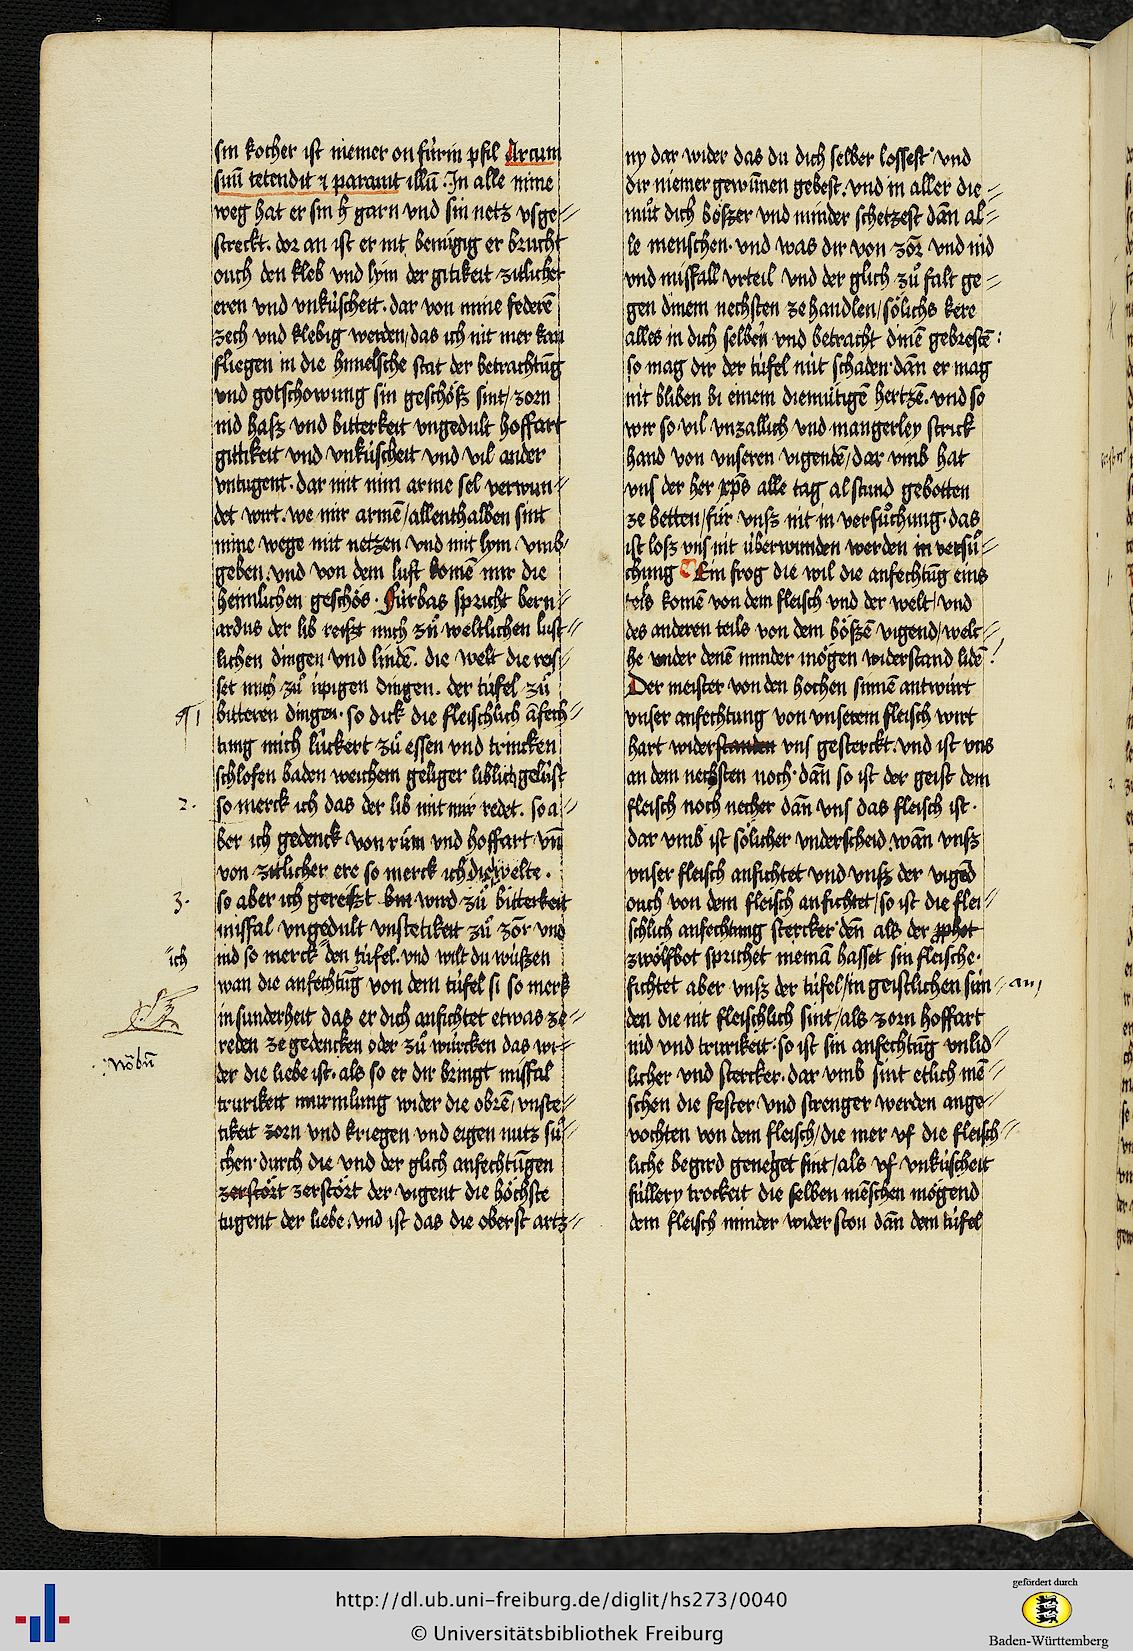 sin kocher ist niemer on fúrin pfil Arcum
suū tetendit ⁊ parauit illū. In alle mine
weg hat er sin h garn vnd sin netz vsge⸗
streckt. dor an ist er nit benúgig er brucht
ouch den kleb vnd lym der gitikeit zitlicher
eren vnd vnkúscheit. dar von mine federē
zech vnd klebig werden / das ich nit mer kan
fliegen in die himelsche stat der betrachtūg
vnd gotschowung sin geschöß sint / zorn
nid haß vnd bitterkeit vngedult hoffart
gittikeit vnd vnkúscheit vnd vil ander
vntugent. dar mit min arme sel verwun⸗
det wirt. we mir armē / allenthalben sint
mine wege mit netzen vnd mit lym vmb⸗
geben. vnd von dem luft komē mir die
heimlichen geschös. Fúrbas spricht bern⸗
ardus der lib reißt mich zů weltlichen lust⸗
lichen dingen vnd lindē. die welt die reis⸗
set mich zů úpigen dingen. der túfel zů
bitteren dingen. so dick die fleischlich āfech⸗
tung mich lückert zů essen vnd trincken
schlofen baden weichem geliger liblich gelúst
so merck ich das der lib mit mir redet. so a⸗
ber ich gedenck von rům vnd hoffart vn̄
von zitlicher ere so merck ich die welte.
so aber ich gereißt bin wird zů bitterkeit
missfal vngedult vnstetikeit zů zōr vnd
nid so merck den túfel. vnd wilt du wüßen
wan die anfechtūg von dem túfel si so merk
in sunderheit das er dich anfichtet etwas ze⸗
reden ze gedencken oder zů würcken das wi⸗
der die liebe ist. als so er dir bringt missfal
trurikeit murmlung wider die obrē / vnste⸗
tikeit zorn vnd kriegen vnd eigen nutz sů⸗
chen. durch die vnd der glich anfechtūgen
zerstört zerstört der vigent die höchste
tugent der liebe. vnd ist das die oberst artz⸗
¶ 1
2.
3.
ich
ny dar wider das du dich selber lossest vnd
dir niemer gewūnen gebest. vnd in aller die⸗
můt dich bößer vnd minder schetzest dān al⸗
le menschen. vnd was dir von zōr vnd nid
vnd missfall vrteil vnd der glich zů falt ge⸗
gen dinem nechsten ze handlen / sölichs kere
alles in dich selben vnd betracht dinē gebrestē:
so mag dir der túfel nüt schaden. dān er mag
nit bliben bi einem diemütigē hertzē. vnd so
wir so vil vnzallich vnd mangerley strick
hand von vnseren vigendē / dar vmb hat
vns der her xp̄s alle tag al stund gebotten
ze betten / für vnß nit in versůchung. das
ist loß vns nit überwunden werden in versů⸗
chung Ein frog die wil die anfechtūg eins
teils komē von dem fleisch vnd der welt / vnd
des anderen teils von dem bößē vigend / welt⸗
he vnder denē minder mögen widerstand lidē
Der meister von den hochen sinnē antwürt
vnser anfechtung von vnserem fleisch wirt
hart widerstanden vns gesterckt. vnd ist vns
an dem nechsten noch. dān so ist der geist dem
fleisch noch necher dān vns das fleisch ist.
dar vmb ist sölicher vnderscheid. wān vnß
vnser fleisch anfichtet vnd vnß der vigēd
ouch von dem fleisch anfichtet / so ist die flei⸗
schlich anfechtung stercker. dēn als der pphet
zwölfbot sprichet niemā hasset sin fleische.
fichtet aber vnß der túfel / in geistlichen sün⸗ an
den die nit fleischlich sint / als zorn hoffart
nid vnd trurikeit. so ist sin anfechtūg vnlid⸗
licher vnd stercker. dar vmb sint etlich mē⸗
schen die fester vnd strenger werden ange⸗
vochten von dem fleisch / die mer vf die fleisch⸗
liche begird geneget sint / als vf vnkúscheit
füllery trockeit die selben mēschen mögend
dem fleisch minder wider ston dān dem túfel
http://dl.ub.uni-freiburg.de/diglit/hs273/0040
© Universitätsbibliothek Freiburg
gefördert durch
Baden-Württemberg